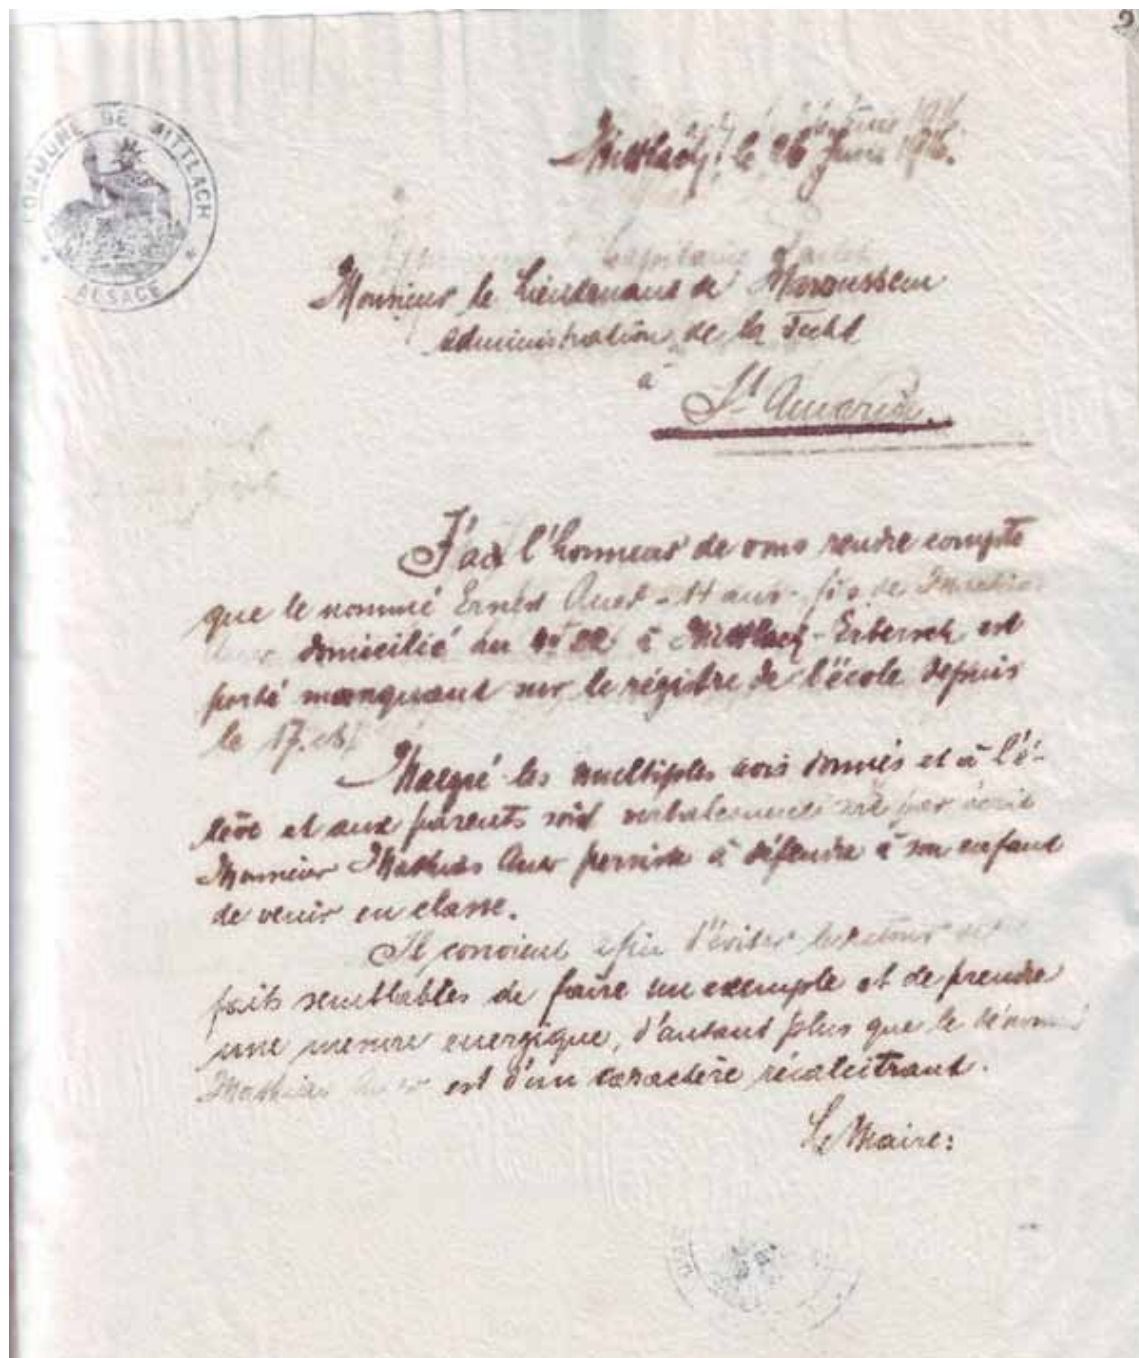 2
COMMUNE DE MITTLACH
* ALSACE *
Mittlach, le 26 Juin 1916.
Monsieur le Lieutenant de Maroussem
Administration de la Fecht
à
St Amarin.
J'ai l'honneur de vous rendre compte
que le nommé Ernest Auer - 11 ans - fils de
domicilié au à Mittlach-Erbersch est
porté manquant sur le régistre de l'école depuis
le 17.
Malgré les multiples avis donnés et à l'é-
lève et aux parents soit verbalement soit par écrit
Monsieur Mathias Auer persiste à défendre à son enfant
de venir en classe.
Il convient afin d'éviter le retour de
faits semblables de faire un exemple et de prendre
une mesure energique, d'autant plus que le dénommé
Mathias Auer est d'un caractère récalcitrant.
Le Maire: